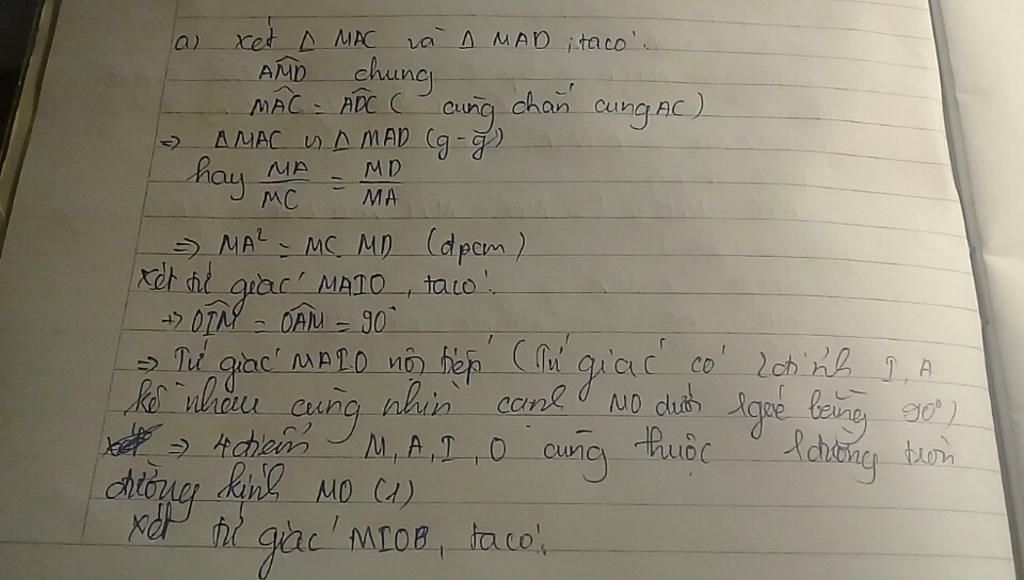 a) xét Δ MAC và Δ MAD, taco':
AMD̂ chung
MAĈ = ADĈ ( cùng chắn cung AC )
=> Δ MAC ∽ Δ MAD (g-g)
hay MA/MC = MD/MA
=> MA² = MC. MD (đpcm)
xét tứ giác MAIO, taco':
+> OIM̂ = OAM̂ = 90°
=> Tứ giác MAIO nội tiếp (Tứ giác có 2 đỉnh I, A
kề nhau cùng nhìn cạnh MO dưới 1 góc bằng 90°)
=> 4 điểm M, A, I, O cùng thuộc 1 đường tròn
đường kính MO (1)
xét tứ giác MIOB, taco':